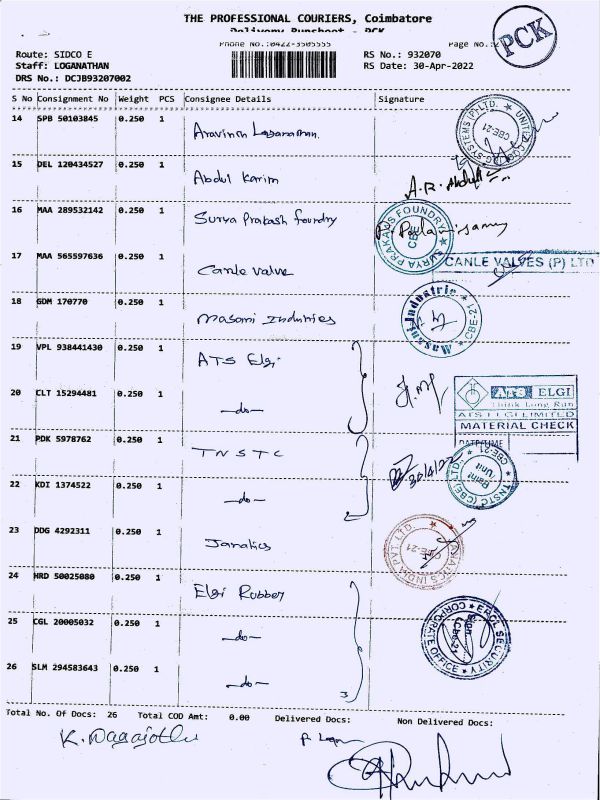 THE PROFESSIONAL COURIERS, Coimbatore
Delivery Runsheet - PCK
Phone No.:0422-3505555 Page No.:2
PCK
Route: SIDCO E RS No.: 932070
Staff: LOGANATHAN RS Date: 30-Apr-2022
DRS No.: DCJB93207002
S No Consignment No Weight PCS Consignee Details Signature
14 SPB 50103845 0.250 1 Aravinth Loganathan.
15 DEL 120434527 0.250 1 Abdul Karim
16 MAA 289532142 0.250 1 Surya Prakash foundry
SURYA PRAKASH FOUNDRY CBE
17 MAA 565597636 0.250 1 Canle valve CANLE VALVES (P) LTD
18 GDM 170770 0.250 1 Masani Industries
Masani Industrie CBE-21
19 VPL 938441430 0.250 1 ATS Elgi
ATS ELGI
Think Long Run
ATS ELGI LIMITED
MATERIAL CHECK
DATE/TIME
20 CLT 15294481 0.250 1 -do-
21 PDK 5978762 0.250 1 TNSTC
30/4/22
TNSTC (CBE) LTD. CBE-21 Unit
22 KDI 1374522 0.250 1 -do-
23 DDG 4292311 0.250 1 Janatics
JANATICS INDIA PVT. LTD. CBE-21
24 HRD 50025080 0.250 1 Elgi Rubber
25 CGL 20005032 0.250 1 -do-
EACL SECURITY CORPORATE OFFICE
26 SLM 294583643 0.250 1 -do-
3
Total No. Of Docs: 26 Total COD Amt: 0.00 Delivered Docs: Non Delivered Docs: